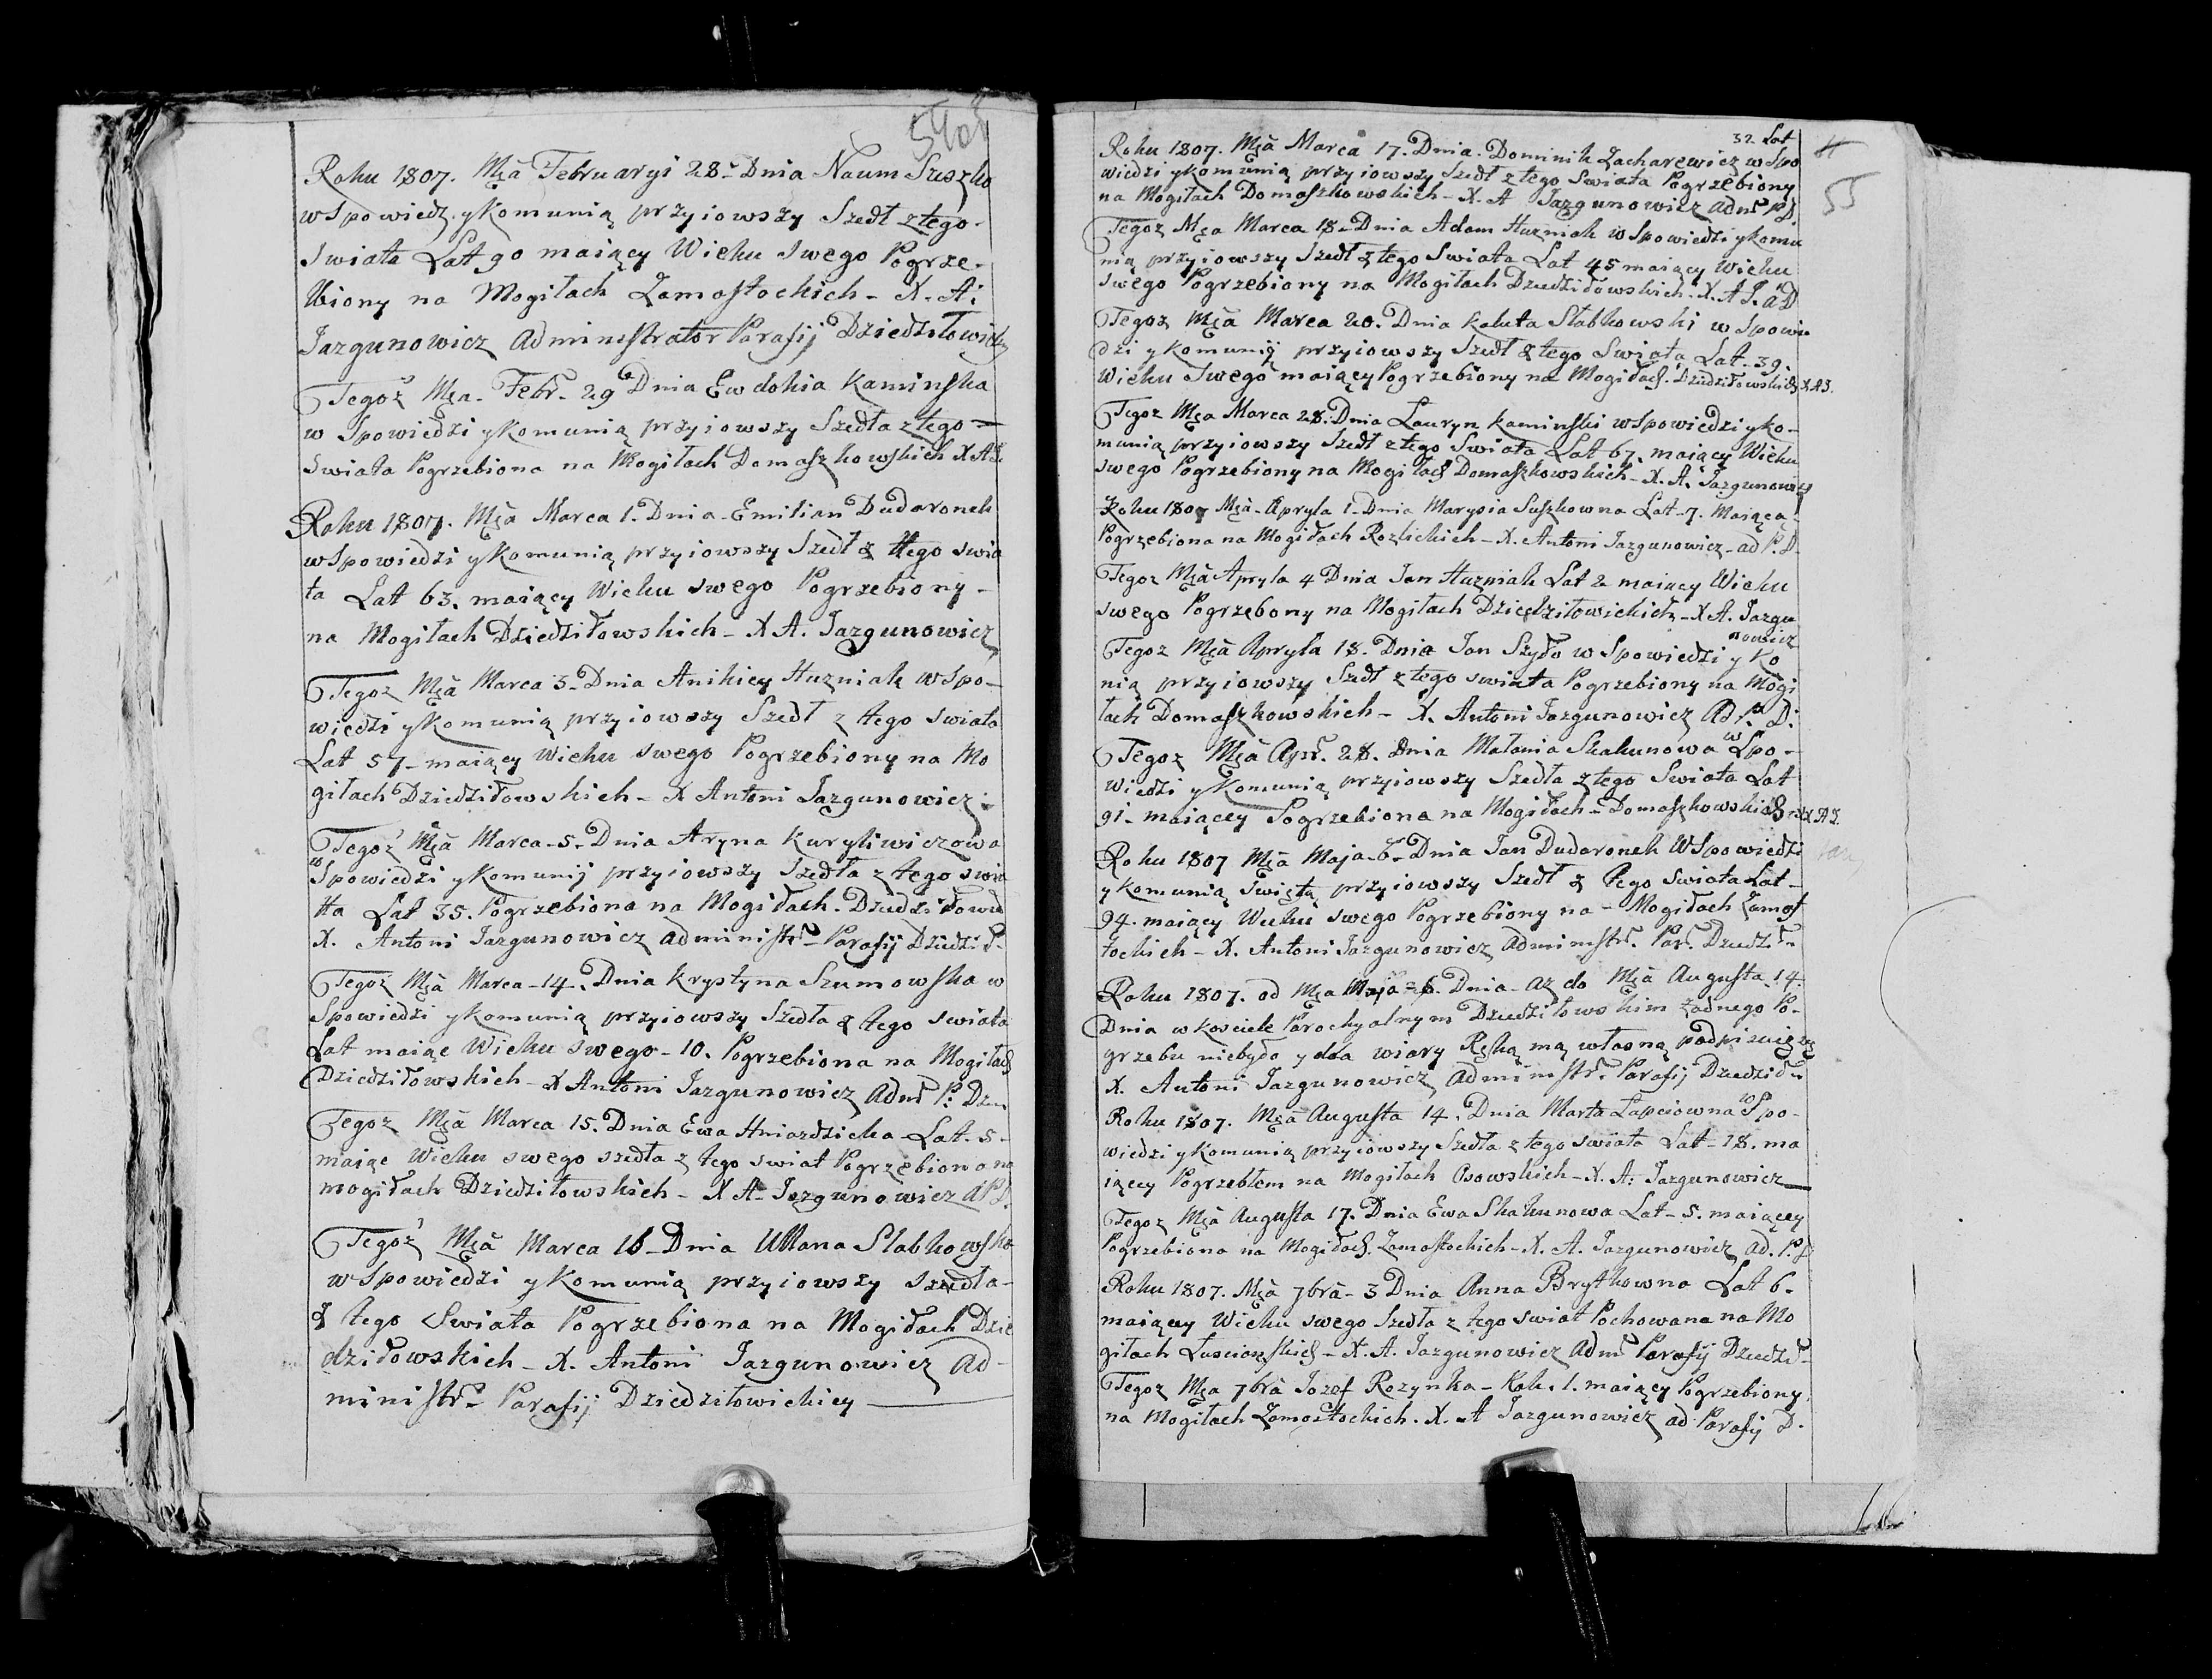 54об
Roku 1807. Mcą Februaryi 28. Dnia Naum Suszko
w Spowiedz. y Komunią przyiowszy Szedł z tego-
Swiata Latt 90 maiący Wieku Swego Pogrze-
biony na Mogiłach Zamostockich - X. A:
Jazgunowicz Administrator Parafij Dziedziłowick
Tegoż Mca. Febr. 29 Dnia Ewdokia Kaminska
w Spowiedzi y Komunią przyiowszy Szedła z tego =
Swiata Pogrzebiona na Mogiłach Domaszkowskich X A J.
Roku 1807. Mcą Marca 1. Dnia - Emilian Dudaronek
w Spowiedzi y Komunią przyiowszy Szedł z tego swia
ta Lat 63. maiący Wieku swego Pogrzebiony -
na Mogiłach Dziedziłowskich - X A. Jazgunowicz
Tegoż Mcą Marca 3 - Dnia Anikiey Huzniak w Spo-
wiedzi y Komunią przyiowszy Szedł z tego swiata
Lat 57 - maiący Wieku swego Pogrzebiony na Mo
giłach Dziedziłowskich - X Antoni Jazgunowicz -
Tegoż Mcą Marca - 5 - Dnia Aryna Kuryliwiczowa
w Spowiedzi y Komunij przyiowszy Szedła z tego swia
tta Lat 35. Pogrzebiona na Mogiłach. Dziedziłowic
X. Antoni Jazgunowicz administr - Parafij Dziedził -
Tegoż Mcą Marca - 14. Dnia Krystyna Szumowska w
Spowiedzi y Komunią przyiowszy Szedła z tego swiata
Lat maiąc Wieku swego - 10. Pogrzebiona na Mogiłach
Dziedziłowskich - X Antoni Jazgunowicz Adm P: Dzie
Tegoż Mcą Marca 15. Dnia Ewa Hniazdzicka Lat. 5 -
maiąc Wieku swego szedła z tego swiat Pogrzebiona na
mogiłach Dziedziłowskich - X A - Jazgunowicz A P D.
Tegoż Mcą Marca 16 - Dnia Ullana Slabkowska
w Spowiedzi y Komunią przyiowszy szedła -
z tego Swiata Pogrzebiona na Mogiłach Dzie
dziłowskich - X. Antoni Jazgunowicz Ad -
ministr - Parafij Dziedziłowickiey
32. Lat
55
Roku 1807. Mcą Marca 17. Dnia. Dominik Zacharewicz w Spo
wiedzi y Komunią przyiowszy Szedł z tego Swiata Pogrzebiony
na Mogiłach Domaszkowskich - X. A Jazgunowicz adm P D.
Tegoz Mca Marca 18 - Dnia Adam Huzniak w Spowiedzi y Komu
nią przyiowszy Szedł z tego Swiata Lat 45 maiący Wieku
swego Pogrzebiony na Mogiłach Dziedziłowskich. X. A J. a D
Tegoz Mcą Marca 20. Dnia Kaluta Slabkowski w Spowie
dzi y Komunią przyiowszy Szedł z tego Swiata Lat - 39.
Wieku Swego maiący Pogrzebiony na Mogiłach. Dziedziłowskich X. A J.
Tegoz Mca Marca 28. Dnia Lauryn Kaminski w Spowiedzi y Ko-
munią przyiowszy Szedł z tego Swiata Lat 67. maiący Wieku
swego Pogrzebiony na Mogiłach Domaszkowskich - X. A. Jazgunowicz
Roku 1807 Mcą - Apryla 1 - Dnia Marysia Suszkowna Lat - 7. Maiąca -
Pogrzebiona na Mogiłach Rozlickich - X. Antoni Jazgunowicz - ad P. D.
Tegoz Mcą Apryla 4 Dnia Jan Huzniak Lat 2 maiący Wieku
swego Pogrzebony na Mogiłach Dziedziłowickich - X A. Jazgu
nowicz
Tegoz Mcą Apryla 18. Dnia Jan Szyło w Spowiedzi y Ko
nią przyiowszy Szedł z tego swiata Pogrzebiony na Mogi
łach Domaszkowskich - X. Antoni Jazgunowicz Ad P. D:
Tegoz Mcą Apr. 28. Dnia Małania Skakunowa w Spo -
wiedzi y Komunią przyiowszy Szedła z tego Swiata Lat
91 - maiącey Pogrzebiona na Mogiłach - Domaszkowskich - X A J.
Roku 1807 Mcą Maja - 6 - Dnia Jan Dudaronek W Spowiedzi
y Komunią Swiętą przyiowszy Szedł z tego Swiata Lat -
94. maiący Wieku swego Pogrzebiony na - Mogiłach Zamos
tockich - X. Antoni Jazgunowicz Administr. Par. Dziedził -
Roku 1807. od Mca Maja - 6. Dnia - az do Mcą Augusta 14.
Dnia w kosciele Parochyalnym Dziedziłowskim żadnego Po-
grzebu niebyło y dla wiary Ręką mą własną podpisuię się
X. Antoni Jazgunowicz Administr. Parafij Dziedził -
Roku 1807. Mcą Augusta 14. Dnia Marta Łapciowna w Spo -
wiedzi y Komunią przyiowszy Szedła z tego swiata Lat - 18. ma
iącey Pogrzebłem na Mogiłach Osowskich - X. A: Jazgunowicz
Tegoz Mcą Augusta 17. Dnia Ewa Skakunowa Lat - 5. maiącey
Pogrzebiona na Mogiłach. Zamostockich - X. A. Jazgunowicz Ad. P. D
Roku 1807. Mcą 7bra - 3 Dnia Anna Brytkowna Lat 6.
maiącey Wieku swego Szedła z tego swiat Pochowana na Mo
giłach Łuscionskich - X. A. Jazgunowicz Adm Parafij Dziedził -
Tegoz Mca 7bra Jozef Rozynka - Rok. 1. maiący Pogrzebiony
na Mogiłach Zamostockich. X. A Jazgunowicz ad Parafij D.